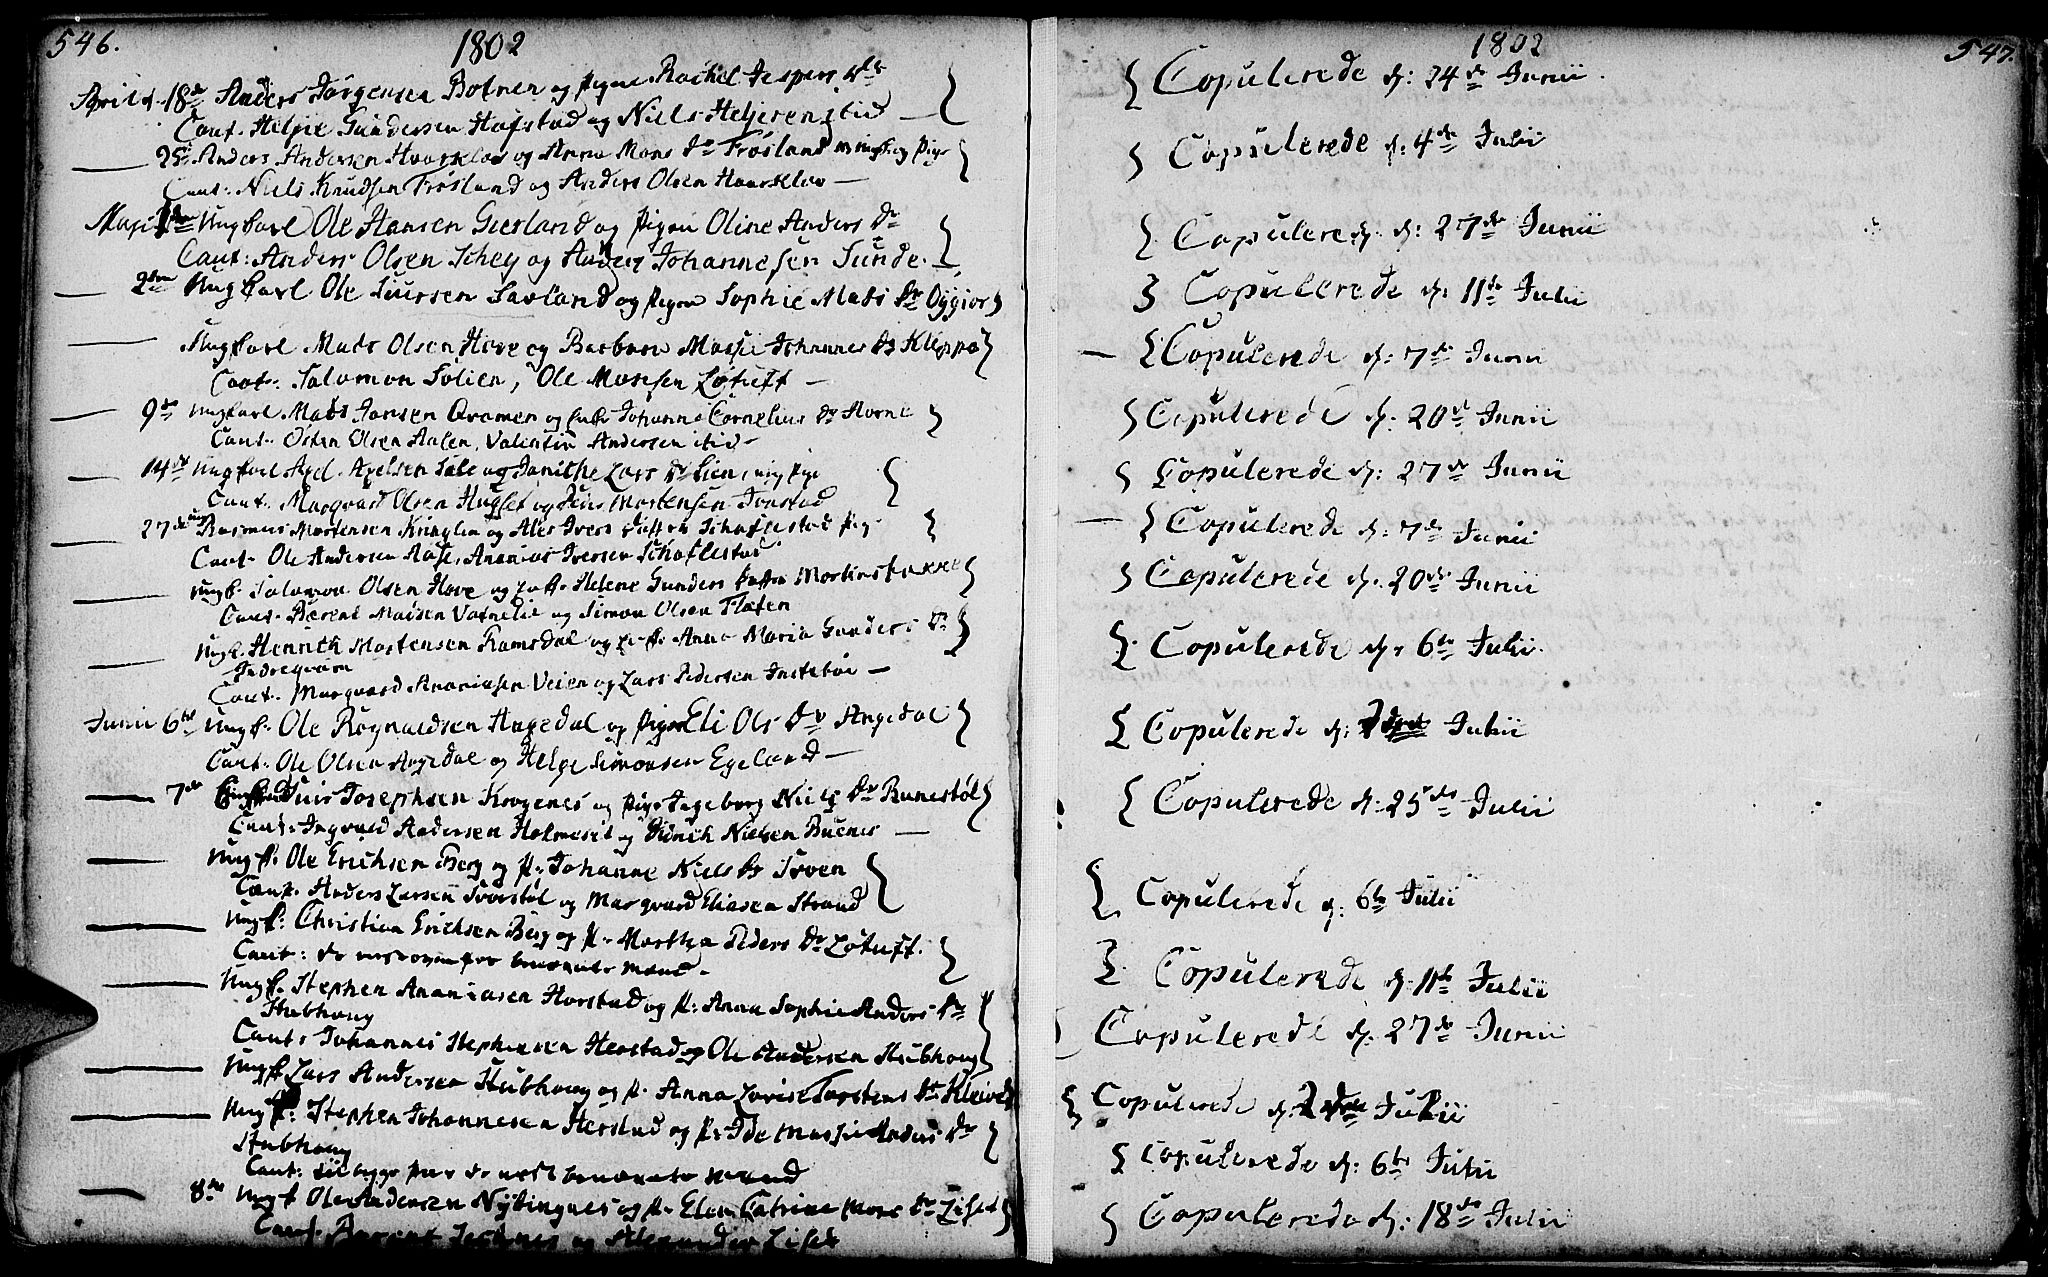 546.
1802
April d. 18de Anders Jørgensen Botnen og Pigen Rachel Jespers Dtr
Caut. Helje Gundersen Hafstad og Niels Heljesen ibid
25 Anders Andersen Haarklav og Anna Mons Dr Frøsland Pige
Caut: Niels Knudsen Frøsland og Anders Olsen Haarklav
Maji Ungkarl Ole Hansen Gierland og Pigen Oline Anders Dr
Caut: Anders Olsen Schey og Anders Johannesen Sunde.
2den Ungkarl Ole Siursen Savland og Pigen Sophie Mads Dr
Ungkarl Mads Olsen Hove og Barbara Massie Johannes Dr Kleppe
Caut: Salomon Solien, Ole Monsen Løtuft
9de Ungkarl Mads Jansen Qvamen og Johanne Cornelius Dr Horne
Caut. Osten Olsen Aalen, Valentin Andersen ibid
14de Ungkarl Axel Axelsen Sole og Lars Dr Lien, Pige
Caut. Marqvard Olsen Hugset og Jens Mortensen Jonstad
27de Rasmus Mortensen og Ales Ivers Datter Schaflestad Pige
Caut. Ole Andersen Aase, Ananias Iversen Schaflestad
Ungk. Salomon Olsen Hove og Helene Gunders Dattr
Caut. Berent Madsen Vatnelie og Simon Olsen Flaten
Ungk. Henrich Mortensen Ramsdal og Anna Maria Gunders Dr
Indrequam
Caut. Marqvard Ananiasen Veien og Lars Pedersen Instebøe
Junii 6te Ungk. Ole Rognaldsen Angedal og Pigen Eli Ols Dr Angedal
Caut. Ole Olsen Angedal og Helge Simonsen Egeland
7de Josephsen Krogenes og Pige Ingeborg Niels Dr Runestøl
Caut: Ingvald Andersen Holmeset og Didrich Nielsen Buenes
Ungk. Ole Erichsen Berg og P. Johanne Niels Dr Svoen
Caut. Anders Larsen Svorstøl og Marqvard Eliasen Strand
Ungk. Christian Erichsen Berg og P. Martha Peders Dr Løtuft.
Caut: de næst ovenfor benævnte Mænd.
Ungk. Stephen Ananiasen Horstad og P. Anna Sophie Anders Dr
Hubhoug
Caut. Johannes Stephensen Herstad og Ole Andersen Hubhoug
Ungk Lars Andersen Hubhoug og P. Anna Lovise Torstens Dr Kleiven
Ungk. Stephen Johannesen Herstad og P. Ide Massie Anders Dr
Hubhoug
Caut: til begge Par de næst benævnte Mænd
8de Ungk Ole Andersen Nybingnes og P. Elen Catrine Mons Dr Liset
Caut. og Alexander Liset
1802
547.
Copulerede d: 24de Junii.
Copulerede d: 4de Julii
Copulerede d: 27de Junii
Copulerede d: 11te Julii
Copulerede d: 7de Junii
Copulerede d: 20de Junii
Copulerede d: 27de Junii
Copulerede d: 7de Junii
Copulerede d: 20de Junii
Copulerede d: 6te Julii.
Copulerede d: Julii
Copulerede d: 25de Julii
Copulerede d: 6te Julii
Copulerede d: 11te Julii
Copulerede d: 27de Junii
Copulerede d: 2den Julii
Copulerede d: 6te Julii
Copulerede d: 18de Julii